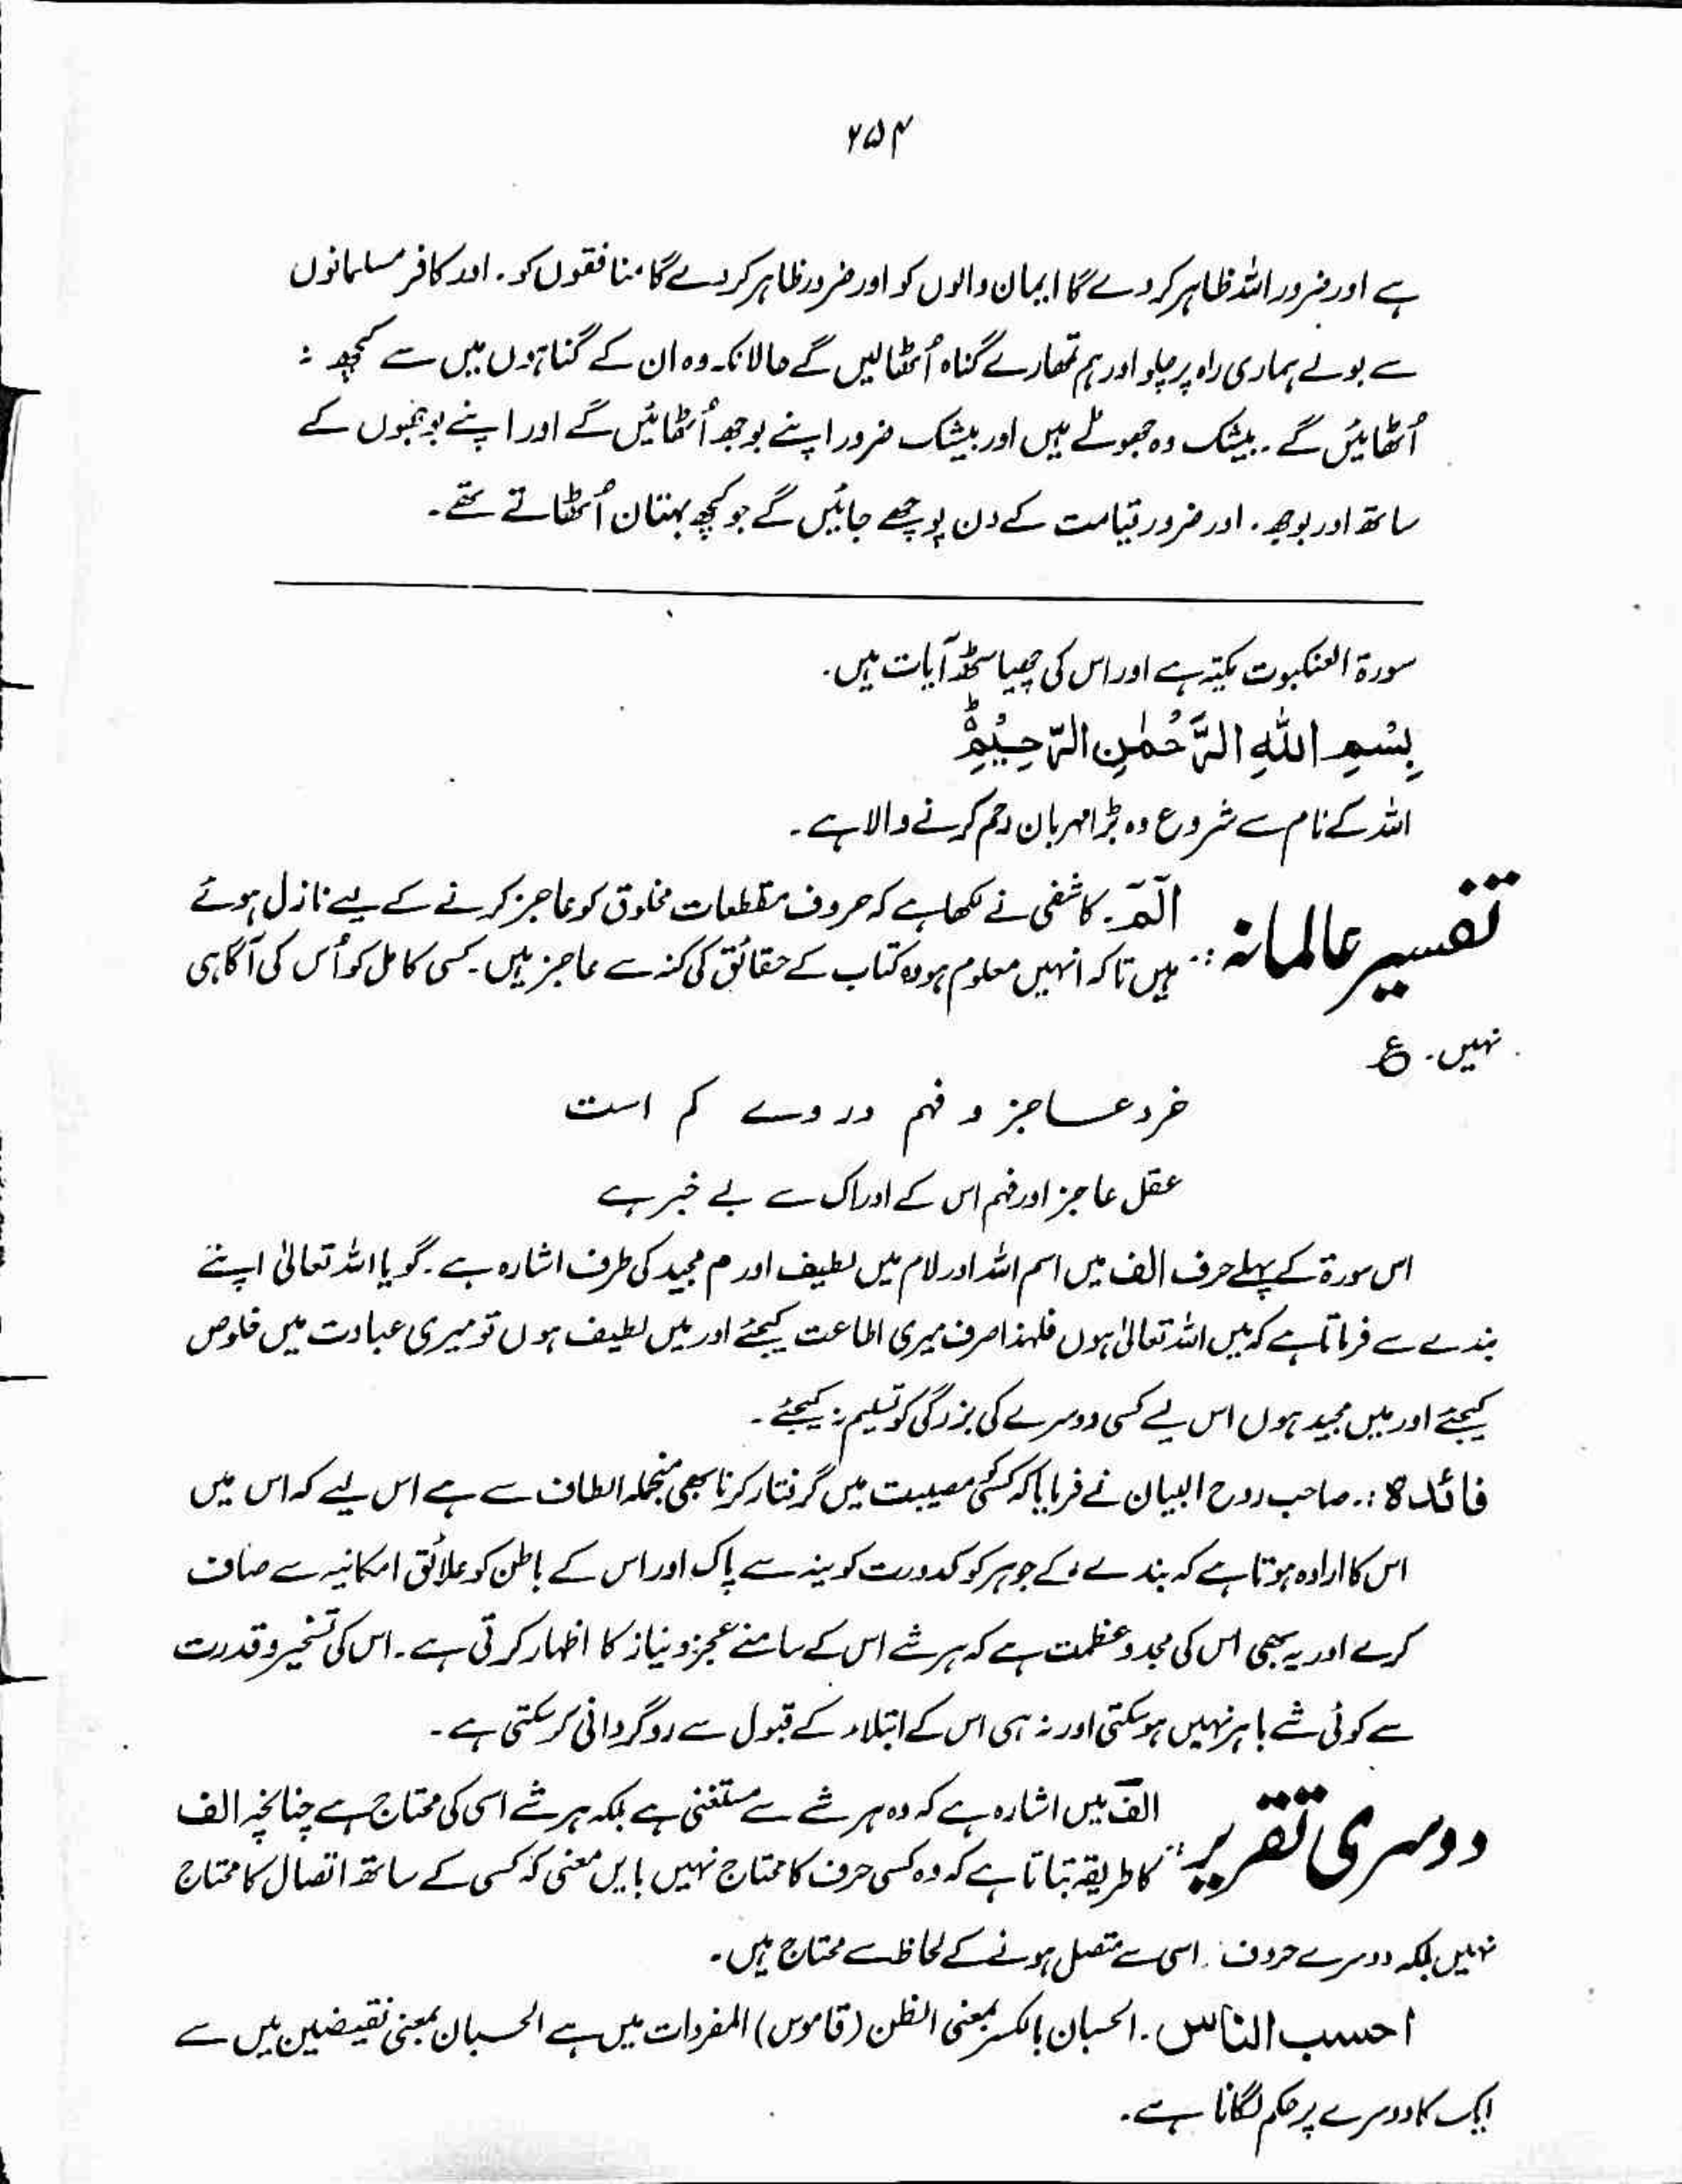 ۲۵۴
ہے اور ضرور اللہ ظاہر کر دے گا ایمان والوں کو اور ضرور ظاہر کر دے گا منافقوں کو۔ اور کافر مسلمانوں
سے بولے ہماری راہ پر چلو اور ہم تمھارے گناہ اُٹھالیں گے حالانکہ وہ ان کے گناہوں میں سے کچھ نہ
اُٹھائیں گے۔ بیشک وہ جھوٹے ہیں اور بیشک ضرور اپنے بوجھ اُٹھائیں گے اور اپنے بوجھوں کے
ساتھ اور بوجھ۔ اور ضرور قیامت کے دن پوچھے جائیں گے جو کچھ بہتان اُٹھاتے تھے۔
سورۃ العنکبوت مکیّہ ہے اور اس کی چھیاسٹھ آیات ہیں۔
بِسْمِ اللّٰہِ الرَّحْمٰنِ الرَّحِیْمِؕ
اللہ کے نام سے شروع وہ بڑا مہربان رحم کرنے والا ہے۔
تفسیر عالمانہ :: الٓمّٓ۔ کاشفی نے لکھا ہے کہ حروف مقطعات مخلوق کو عاجز کرنے کے لیے نازل ہوئے
ہیں تاکہ انہیں معلوم ہو وہ کتاب کے حقائق کی کنہ سے عاجز ہیں۔ کسی کامل کو اُس کی آگاہی
نہیں۔ ع
خرد عاجز و فہم در وے کم است
عقل عاجز اور فہم اس کے ادراک سے بے خبر ہے
اس سورۃ کے پہلے حرف الف میں اسم اللہ اور لام میں لطیف اور م مجید کی طرف اشارہ ہے۔ گویا اللہ تعالیٰ اپنے
بندے سے فرماتا ہے کہ میں اللہ تعالیٰ ہوں فلہٰذا صرف میری اطاعت کیجئے اور میں لطیف ہوں تو میری عبادت میں خلوص
کیجئے اور میں مجید ہوں اس لیے کسی دوسرے کی بزرگی کو تسلیم نہ کیجئے۔
فائدہ :۔ صاحب روح البیان نے فرمایا کہ کسی مصیبت میں گرفتار کرنا بھی منجملہ الطاف سے ہے اس لیے کہ اس میں
اس کا ارادہ ہوتا ہے کہ بندے کے جوہر کو کدورت کوینہ سے پاک اور اس کے باطن کو علائق امکانیہ سے صاف
کرے اور یہ بھی اس کی مجد و عظمت ہے کہ ہر شے اس کے سامنے عجز و نیاز کا اظہار کرتی ہے۔ اس کی تسخیر و قدرت
سے کوئی شے باہر نہیں ہو سکتی اور نہ ہی اس کے ابتلاء کے قبول سے روگردانی کر سکتی ہے۔
دوسری تقریر :: الف میں اشارہ ہے کہ وہ ہر شے سے مستغنی ہے بلکہ ہر شے اسی کی محتاج ہے چنانچہ الف
کا طریقہ بتاتا ہے کہ وہ کسی حرف کا محتاج نہیں بایں معنی کہ کسی کے ساتھ اتصال کا محتاج
نہیں بلکہ دوسرے حروف اسی سے متصل ہونے کے لحاظ سے محتاج ہیں۔
احسب الناس۔ الحسبان بالکسر بمعنی الظن (قاموس) المفردات میں ہے الحسبان بمعنی نقیضین میں سے
ایک کا دوسرے پر حکم لگانا ہے۔